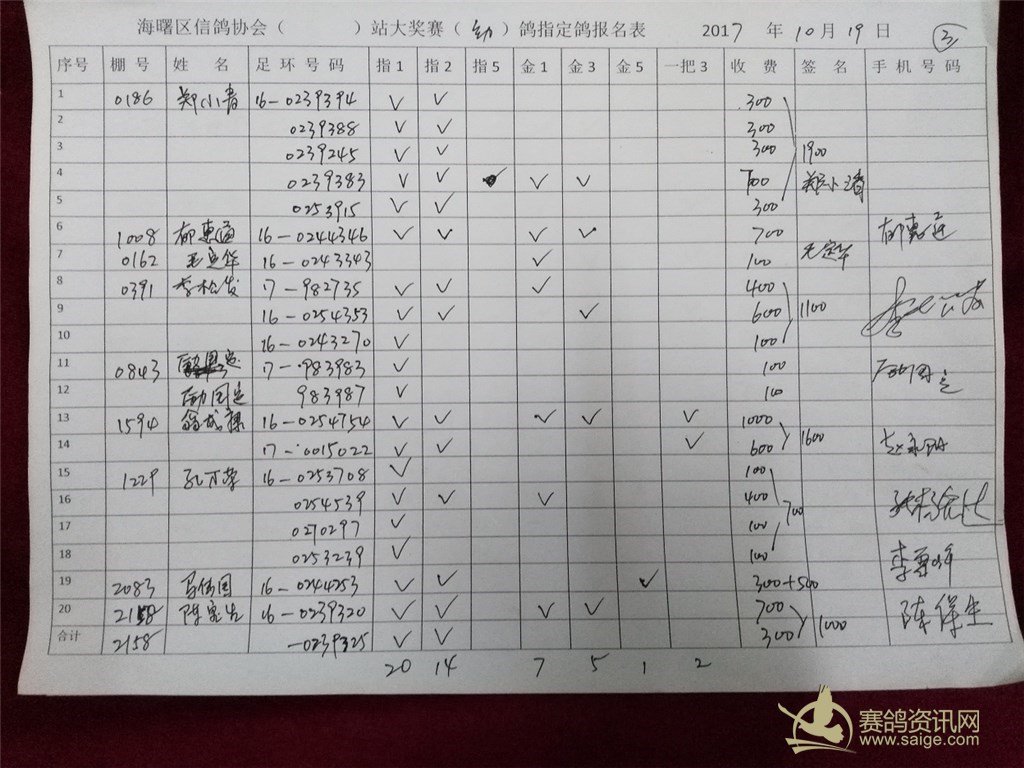 海曙区信鸽协会（ ）站大奖赛（幼）鸽指定鸽报名表 2017 年 10 月 19 日 ③
序号 棚号 姓 名 足环号码 指1 指2 指5 金1 金3 金5 一把3 收费 签名 手机号码
1 0186 郑小青 16-0239394 ✓ ✓ 300
2 0239388 ✓ ✓ 300
3 0239245 ✓ ✓ 300 1900
4 0239383 ✓ ✓ ✓ ✓ 700 郑小青
5 0253915 ✓ ✓ 300
6 1008 16-0244346 ✓ ✓ ✓ ✓ 700
7 0162 16-0243343 ✓ 100
8 0391 李松发 17-982735 ✓ ✓ ✓ 400
9 16-0254353 ✓ ✓ ✓ 600 1100
10 16-0243270 ✓ 100
11 0843 17-983983 ✓ 100
12 983987 ✓ 100
13 1594 16-0254754 ✓ ✓ ✓ ✓ ✓ 1000
14 17-0015022 ✓ ✓ ✓ 600 1600
15 1229 孔万荣 16-0253708 ✓ 100
16 0254539 ✓ ✓ ✓ 400 700
17 0270297 ✓ 100
18 0253239 ✓ 100
19 2083 16-0244253 ✓ ✓ ✓ 300+500
20 2158 16-0239320 ✓ ✓ ✓ ✓ 700
合计 2158 -0239325 ✓ ✓ 300 1000
20 14 7 5 1 2
赛鸽资讯网
www.saige.com